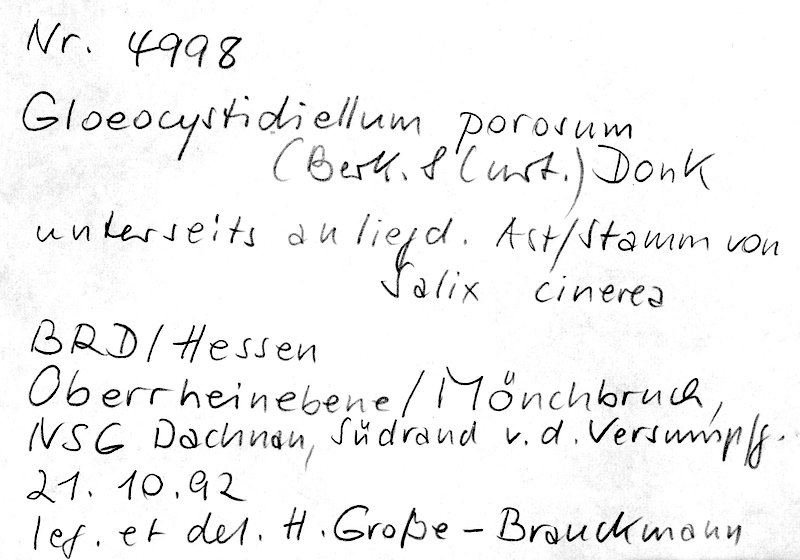 Nr. 4998
Gloeocystidiellum porosum
(Berk. & Curt.) Donk
unterseits an liegd. Ast/Stamm von
Salix cinerea
BRD/Hessen
Oberrheinebene/Mönchbruch,
NSG Dachnau, Südrand v. d. Versumpfg.
21. 10. 92
leg. et det. H. Große-Brauckmann